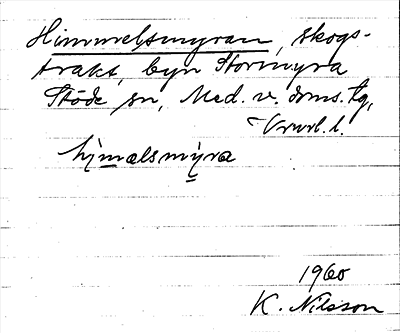 Himmelsmyran, skogs-
trakt, byn Stormyra
Stöde sn, Med. v. doms. tg,
Vrurl. l.
hìmælsmỳra
1960
K. Nilsson